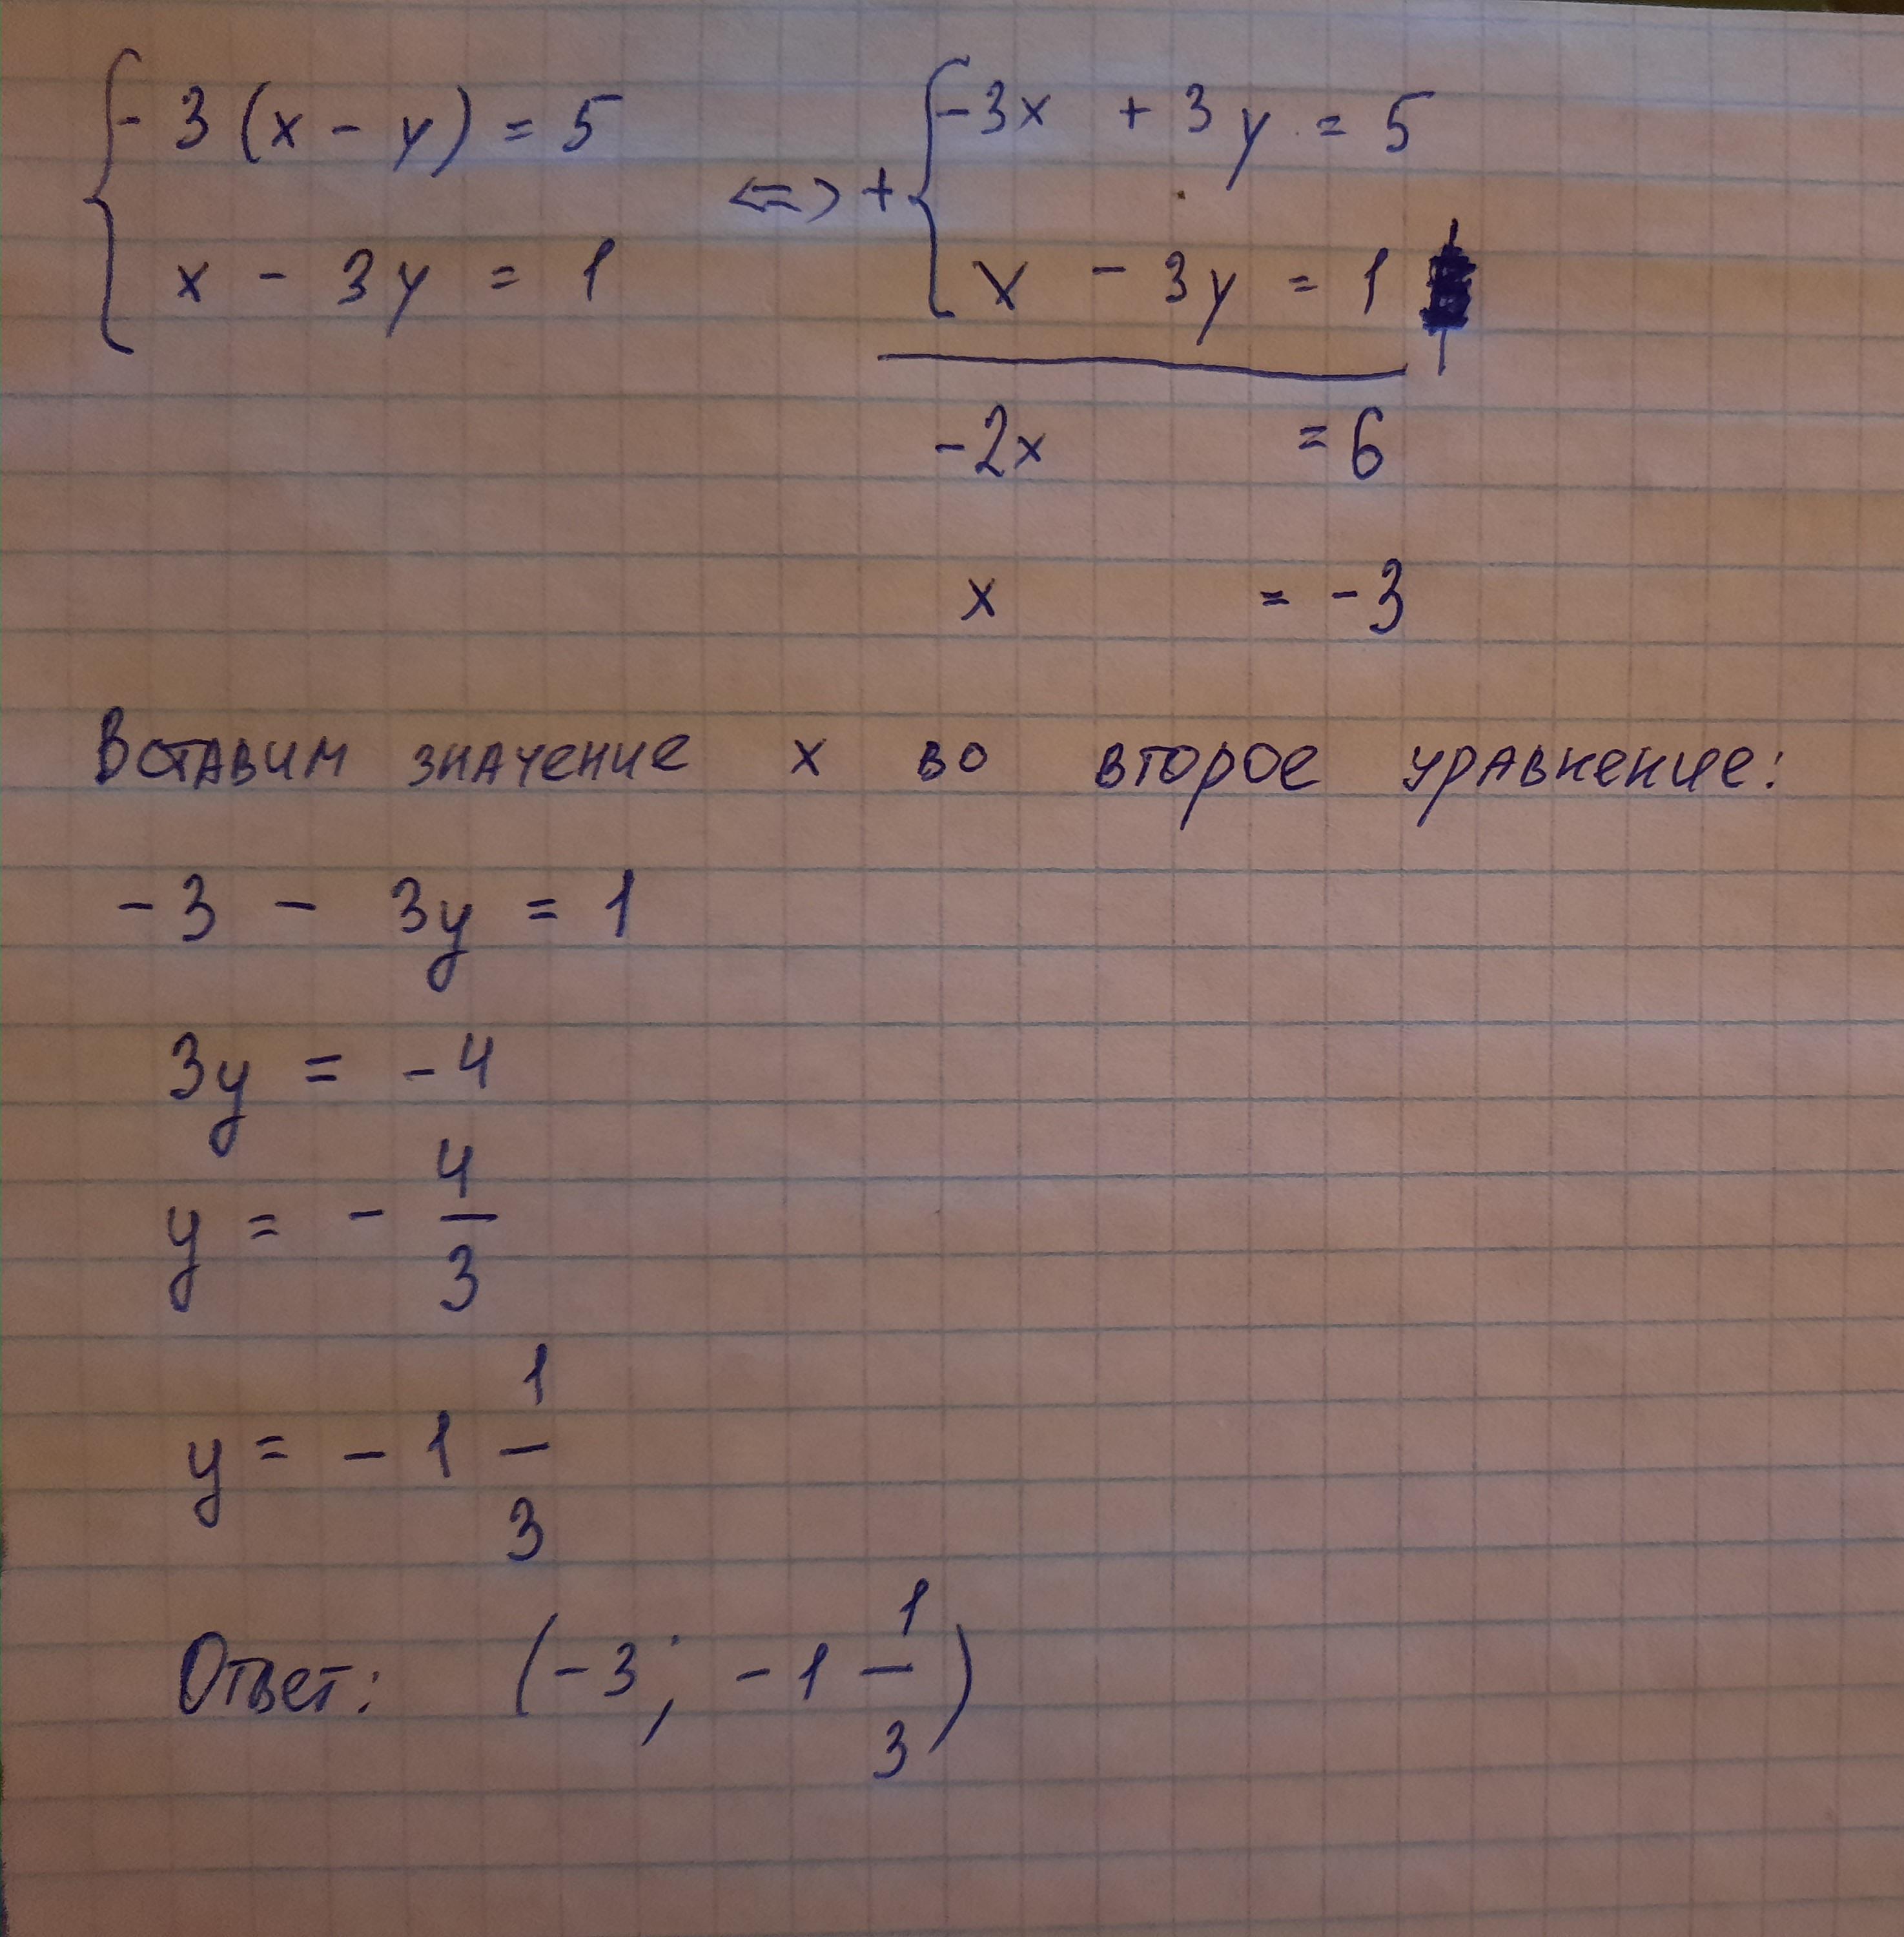 - 3 (x - y) = 5 <=> + -3x + 3y = 5
x - 3y = 1 x - 3y = 1
-2x = 6
x = -3
Вставим значение x во второе уравнение:
-3 - 3y = 1
3y = -4
y = - 4/3
y = - 1 1/3
Ответ: (-3; -1 1/3)